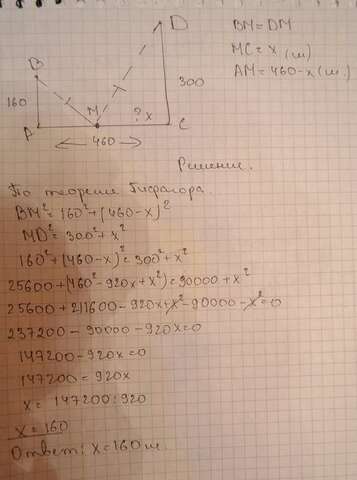 D
B
BM=DM
MC=x (м)
AM=460-x(м.)
160
300
M
? x
A
C
460
Решение.
По теореме Пифагора.
BM²=160²+(460-x)²
MD²=300²+x²
160²+(460-x)²=300²+x²
25600+(460²-920x+x²)=90000+x²
25600+211600-920x+x²-90000-x²=0
237200-90000-920x=0
147200-920x=0
147200=920x
x=147200:920
x=160
Ответ: x=160м.